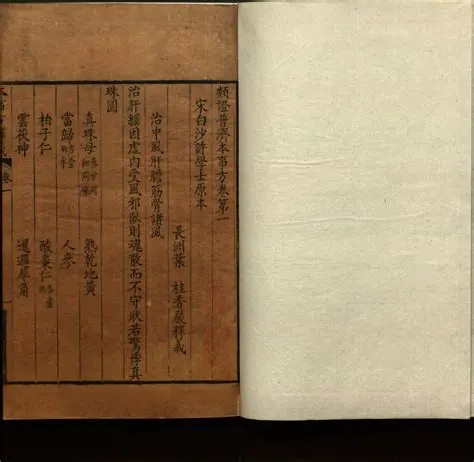 類證普濟本事方卷第一
宋白沙許學士原本
長洲葉 桂香巖釋義
治中風肝膽筋骨諸風
治肝經因虛內受風邪臥則魂散而不守狀若驚悸真
珠圓
真珠母 熟乾地黃
當歸 人參
柏子仁 酸棗仁
雲茯神 暹邏犀角